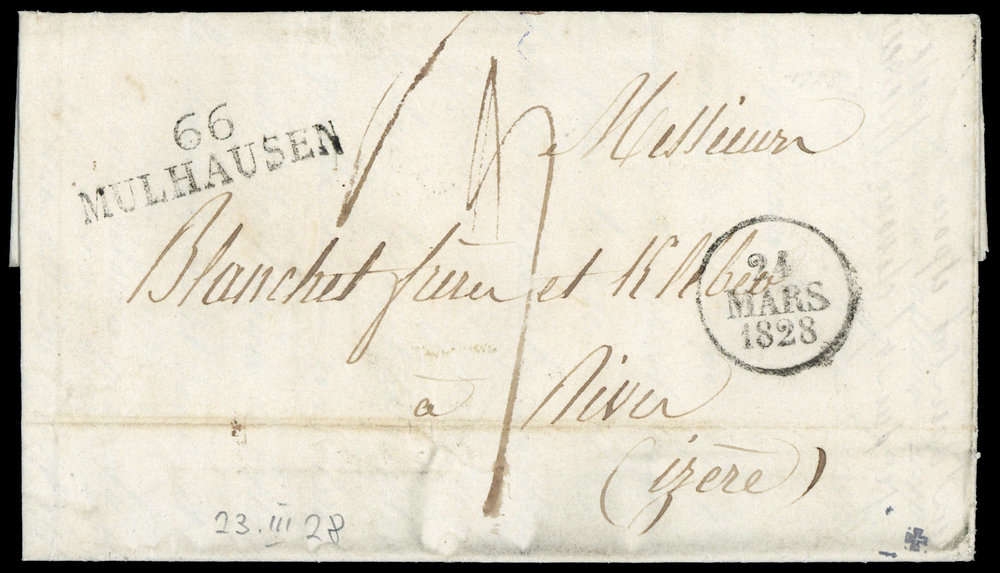 66
MULHAUSEN
Messieurs
Blanchet frères et Kleber
24
MARS
1828
à Rives
(izère)
23.III 28